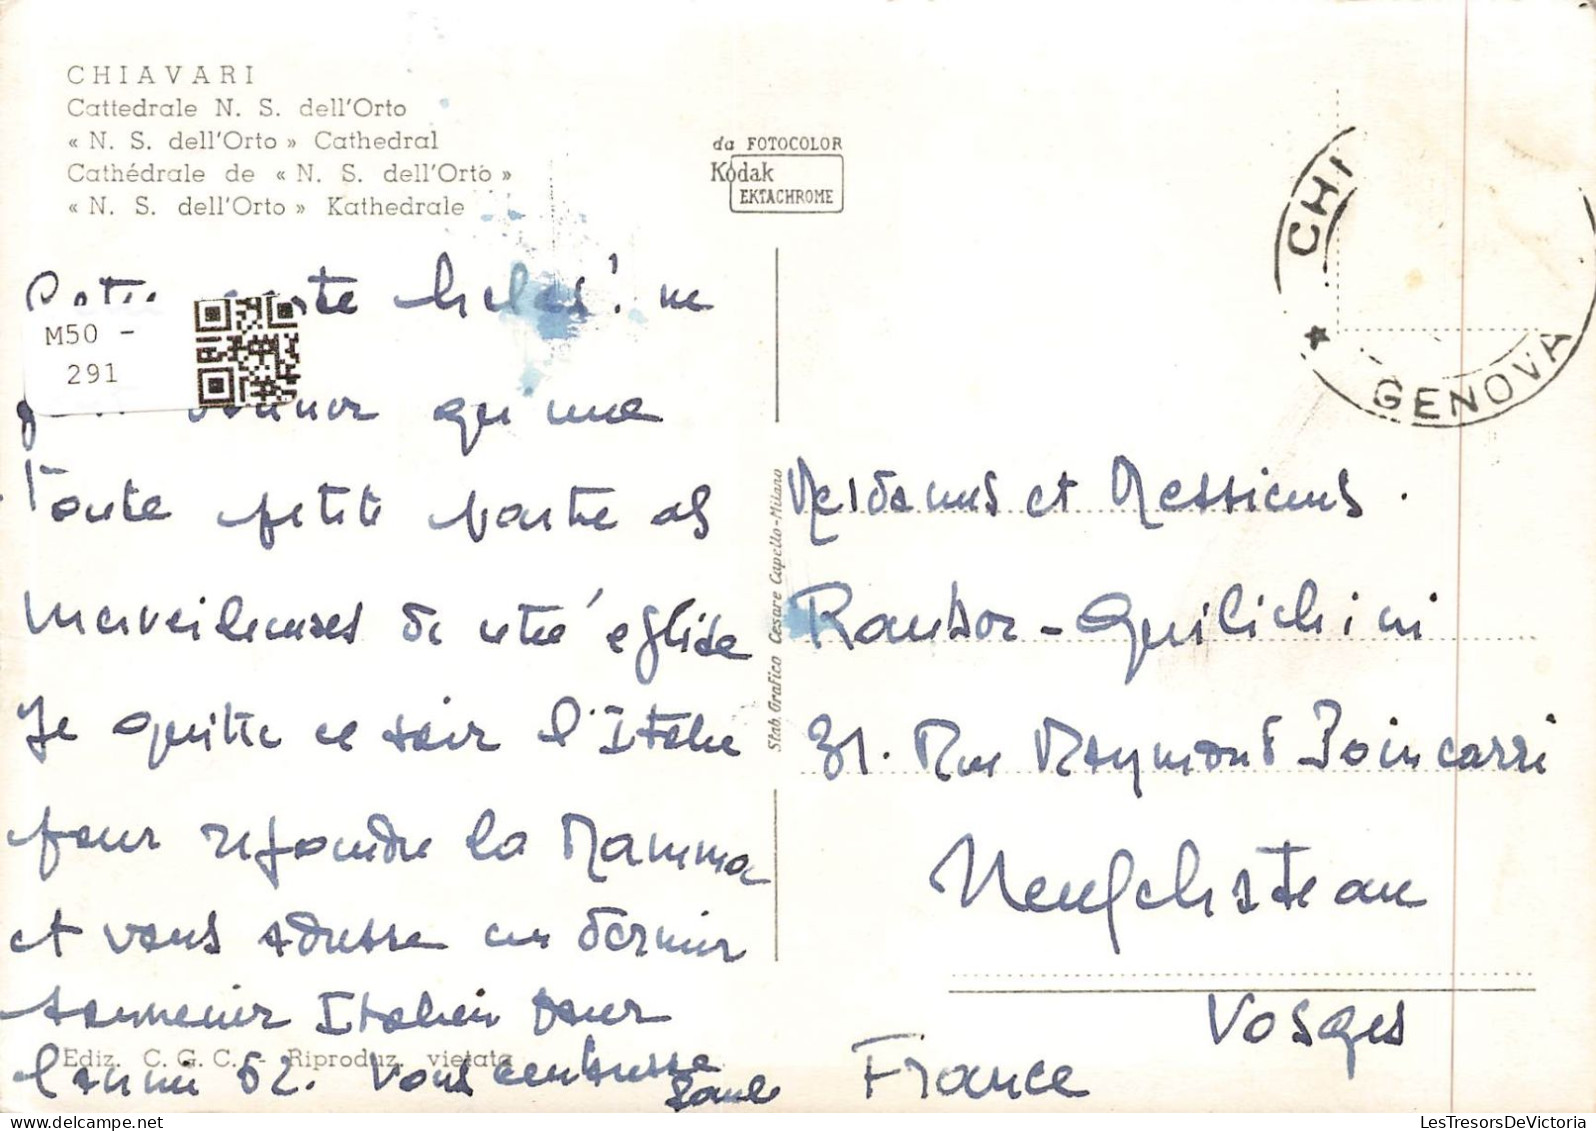 CHIAVARI
Cattedrale N. S. dell'Orto
« N. S. dell'Orto » Cathedral
Cathédrale de « N. S. dell'Orto »
« N. S. dell'Orto » Kathedrale
da FOTOCOLOR
Kodak
EKTACHROME
CHI
GENOVA
M50 -
291
carte helas! ne
donner qu'une
Toute petite partie des
merveilleuses de cette église
Je quitte ce soir l'Italie
pour rejoindre la Mamma
et vous adresse un dernier
souvenir Italien pour
l'année 62. Vous embrasse
Paule
Stab. Grafico Cesare Capello-Milano
Mesdames et Messieurs.
-Quilichini
31. Rue Raymond Poincarré
Neufchateau
Vosges
France
Ediz. C. G. C. - Riproduz. vietata
LesTresorsDeVictoria